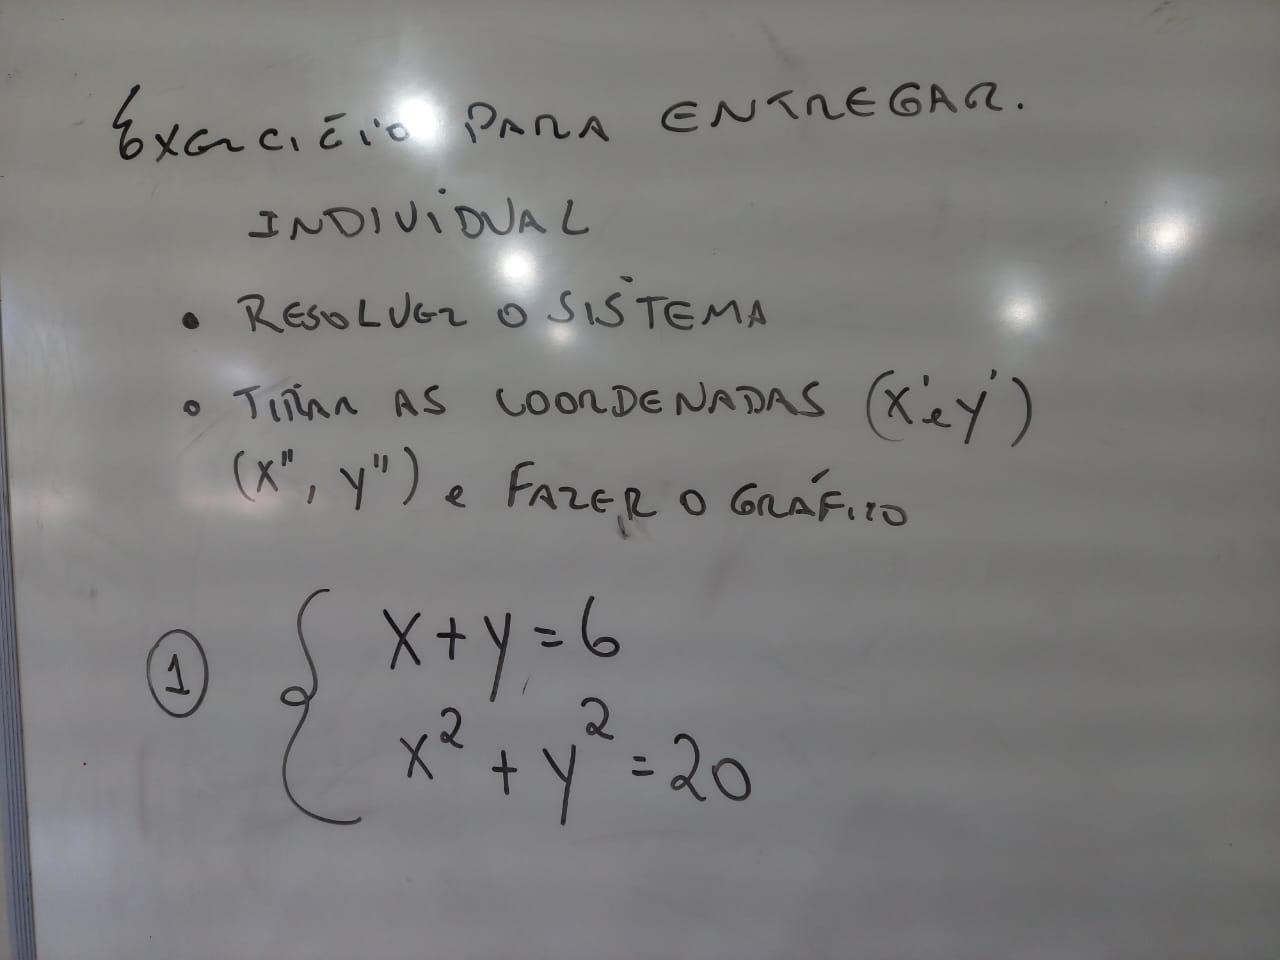 EXERCICÍO PARA ENTREGAR.
INDIVIDUAL
• RESOLVER O SISTEMA
• TIRAR AS COORDENADAS (x' e y')
(x'', y'') e FAZER O GRÁFICO
① { x + y = 6
x² + y² = 20